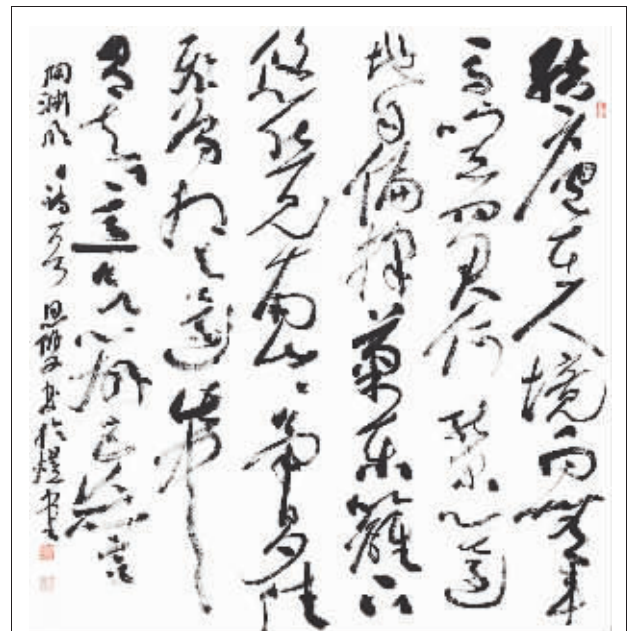 結廬在人境而無車
馬喧問君何能爾心遠
地自偏採菊東籬下
悠然見南山々氣日夕佳
飛鳥相與還此中
有真意欲辨已忘言
陶渊明 詩 書於